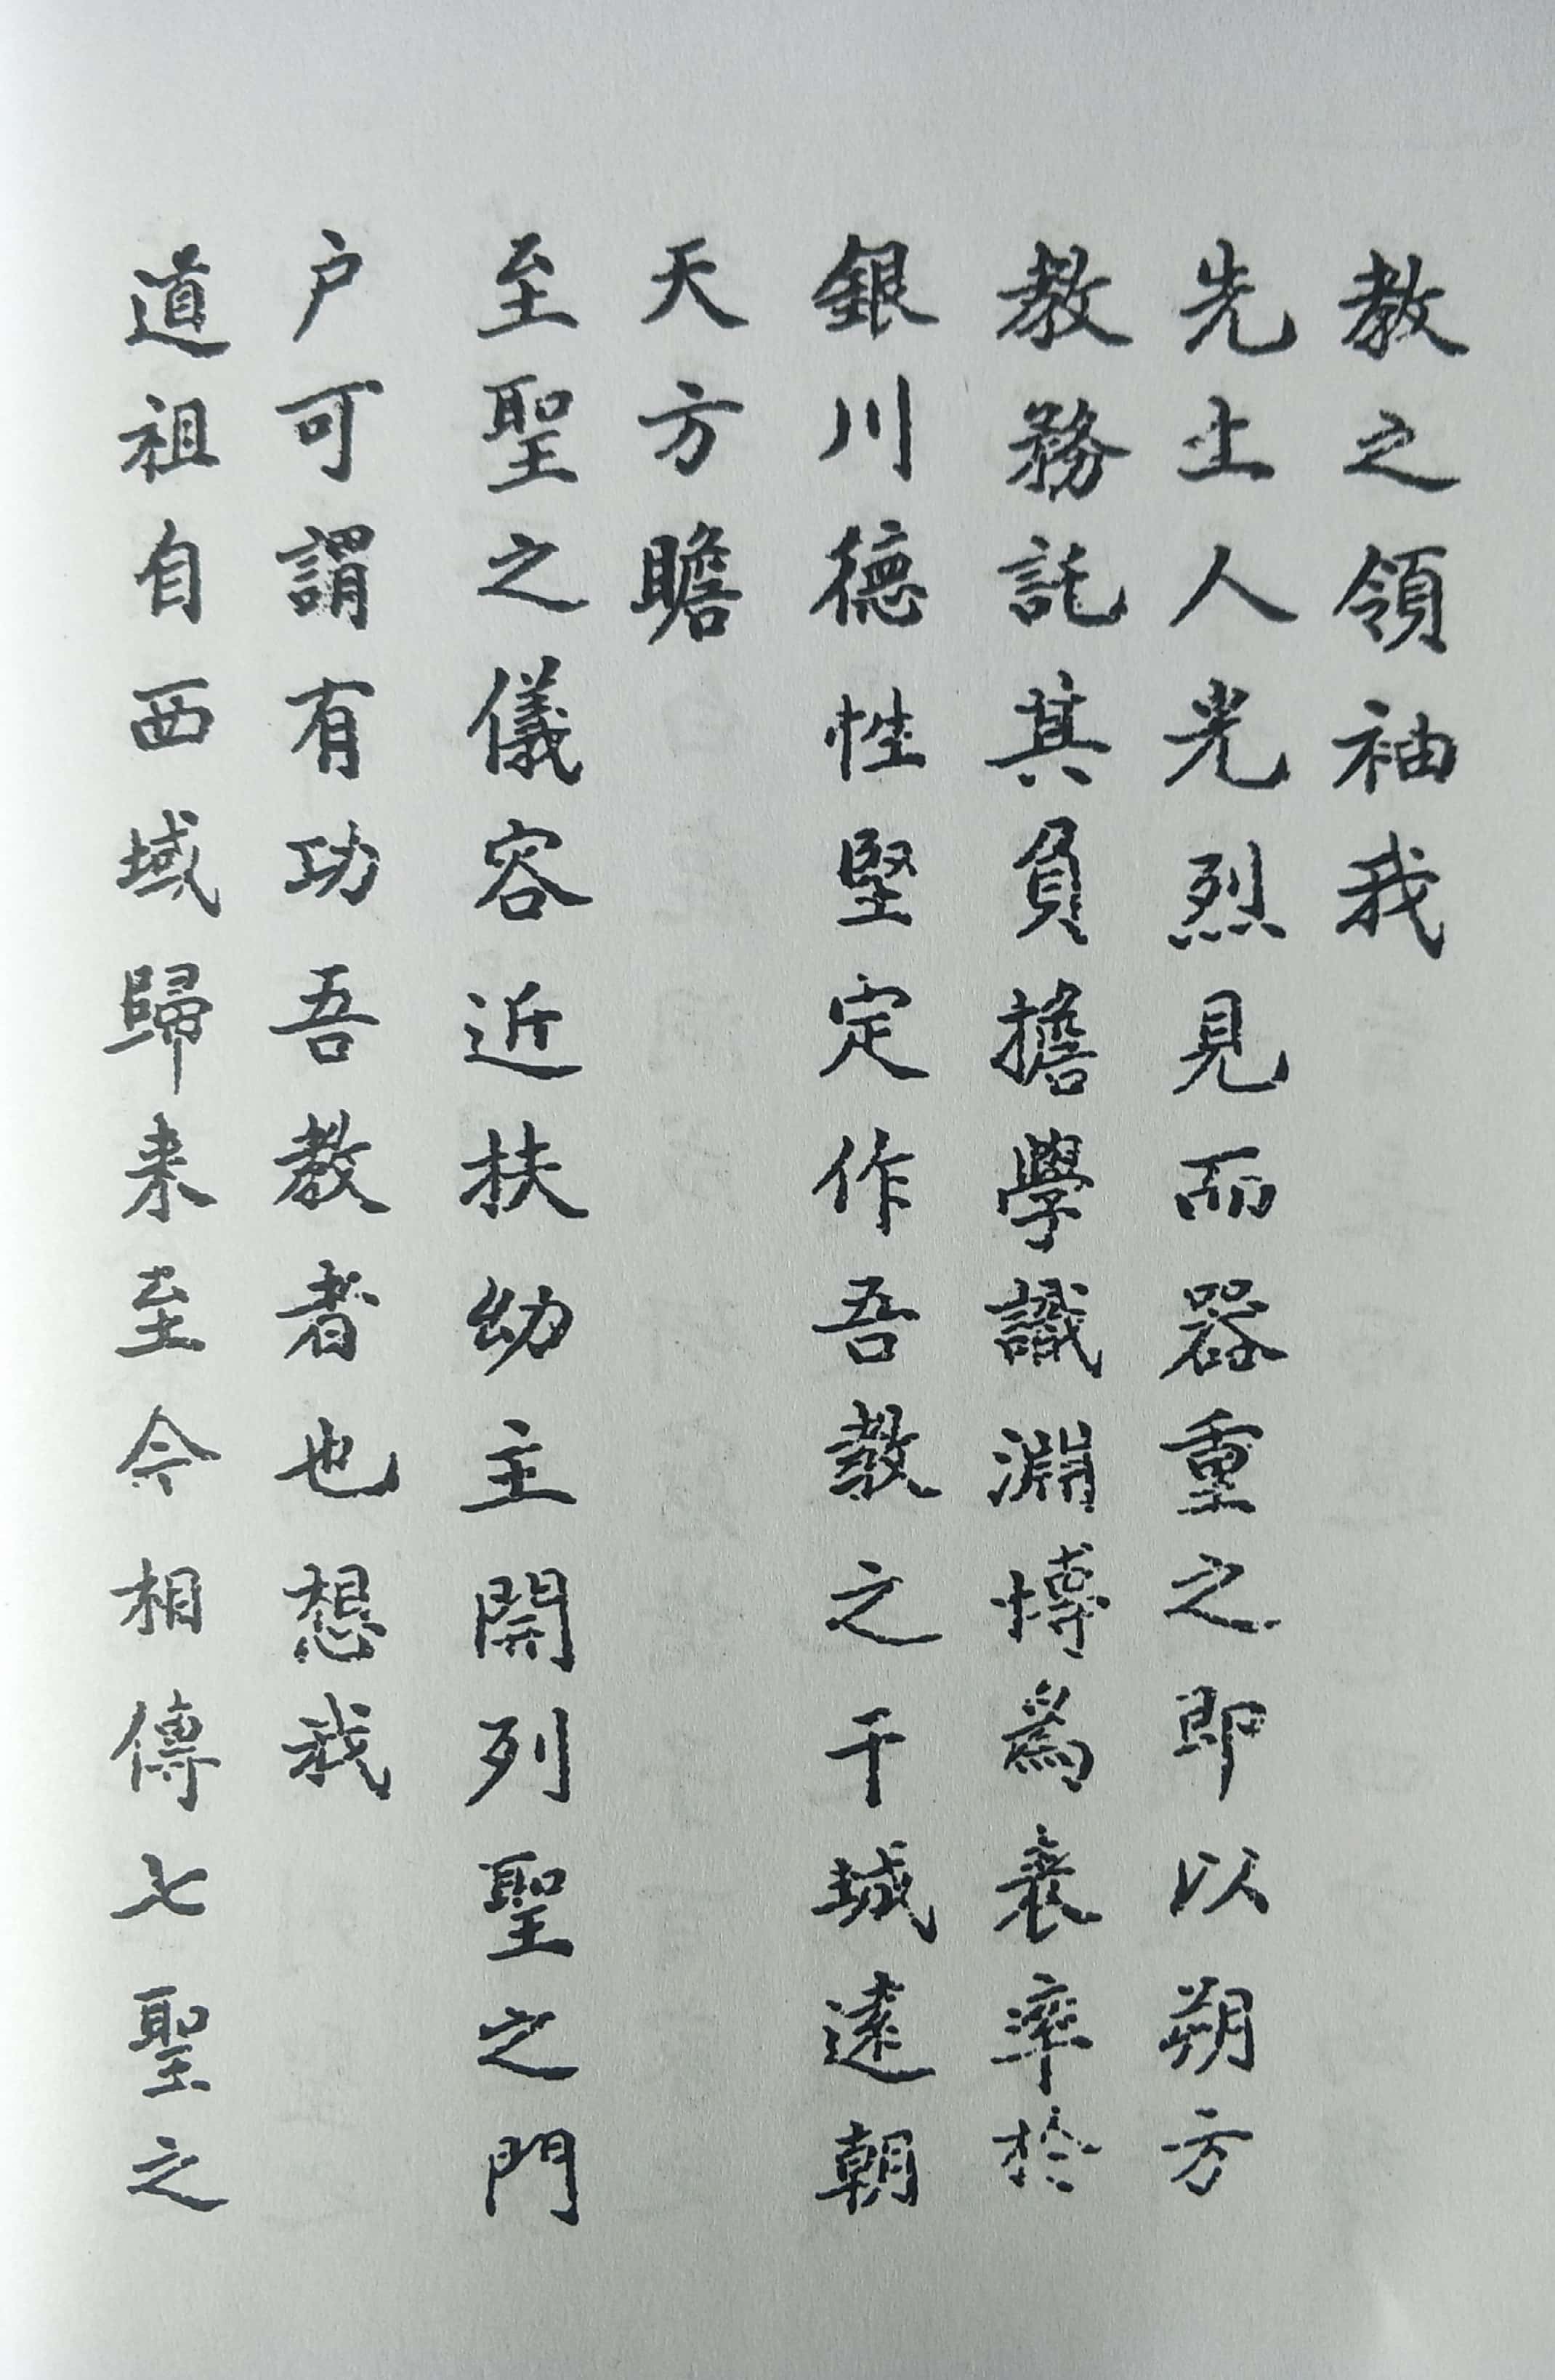 教之領袖我
先上人光烈見而器重之即以朔方
教務託其負擔學識淵博為表率於
銀川德性堅定作吾教之干城遠朝
天方瞻
至聖之儀容近扶幼主開列聖之門
户可謂有功吾教者也想我
道祖自西域歸来至今相傳七聖之